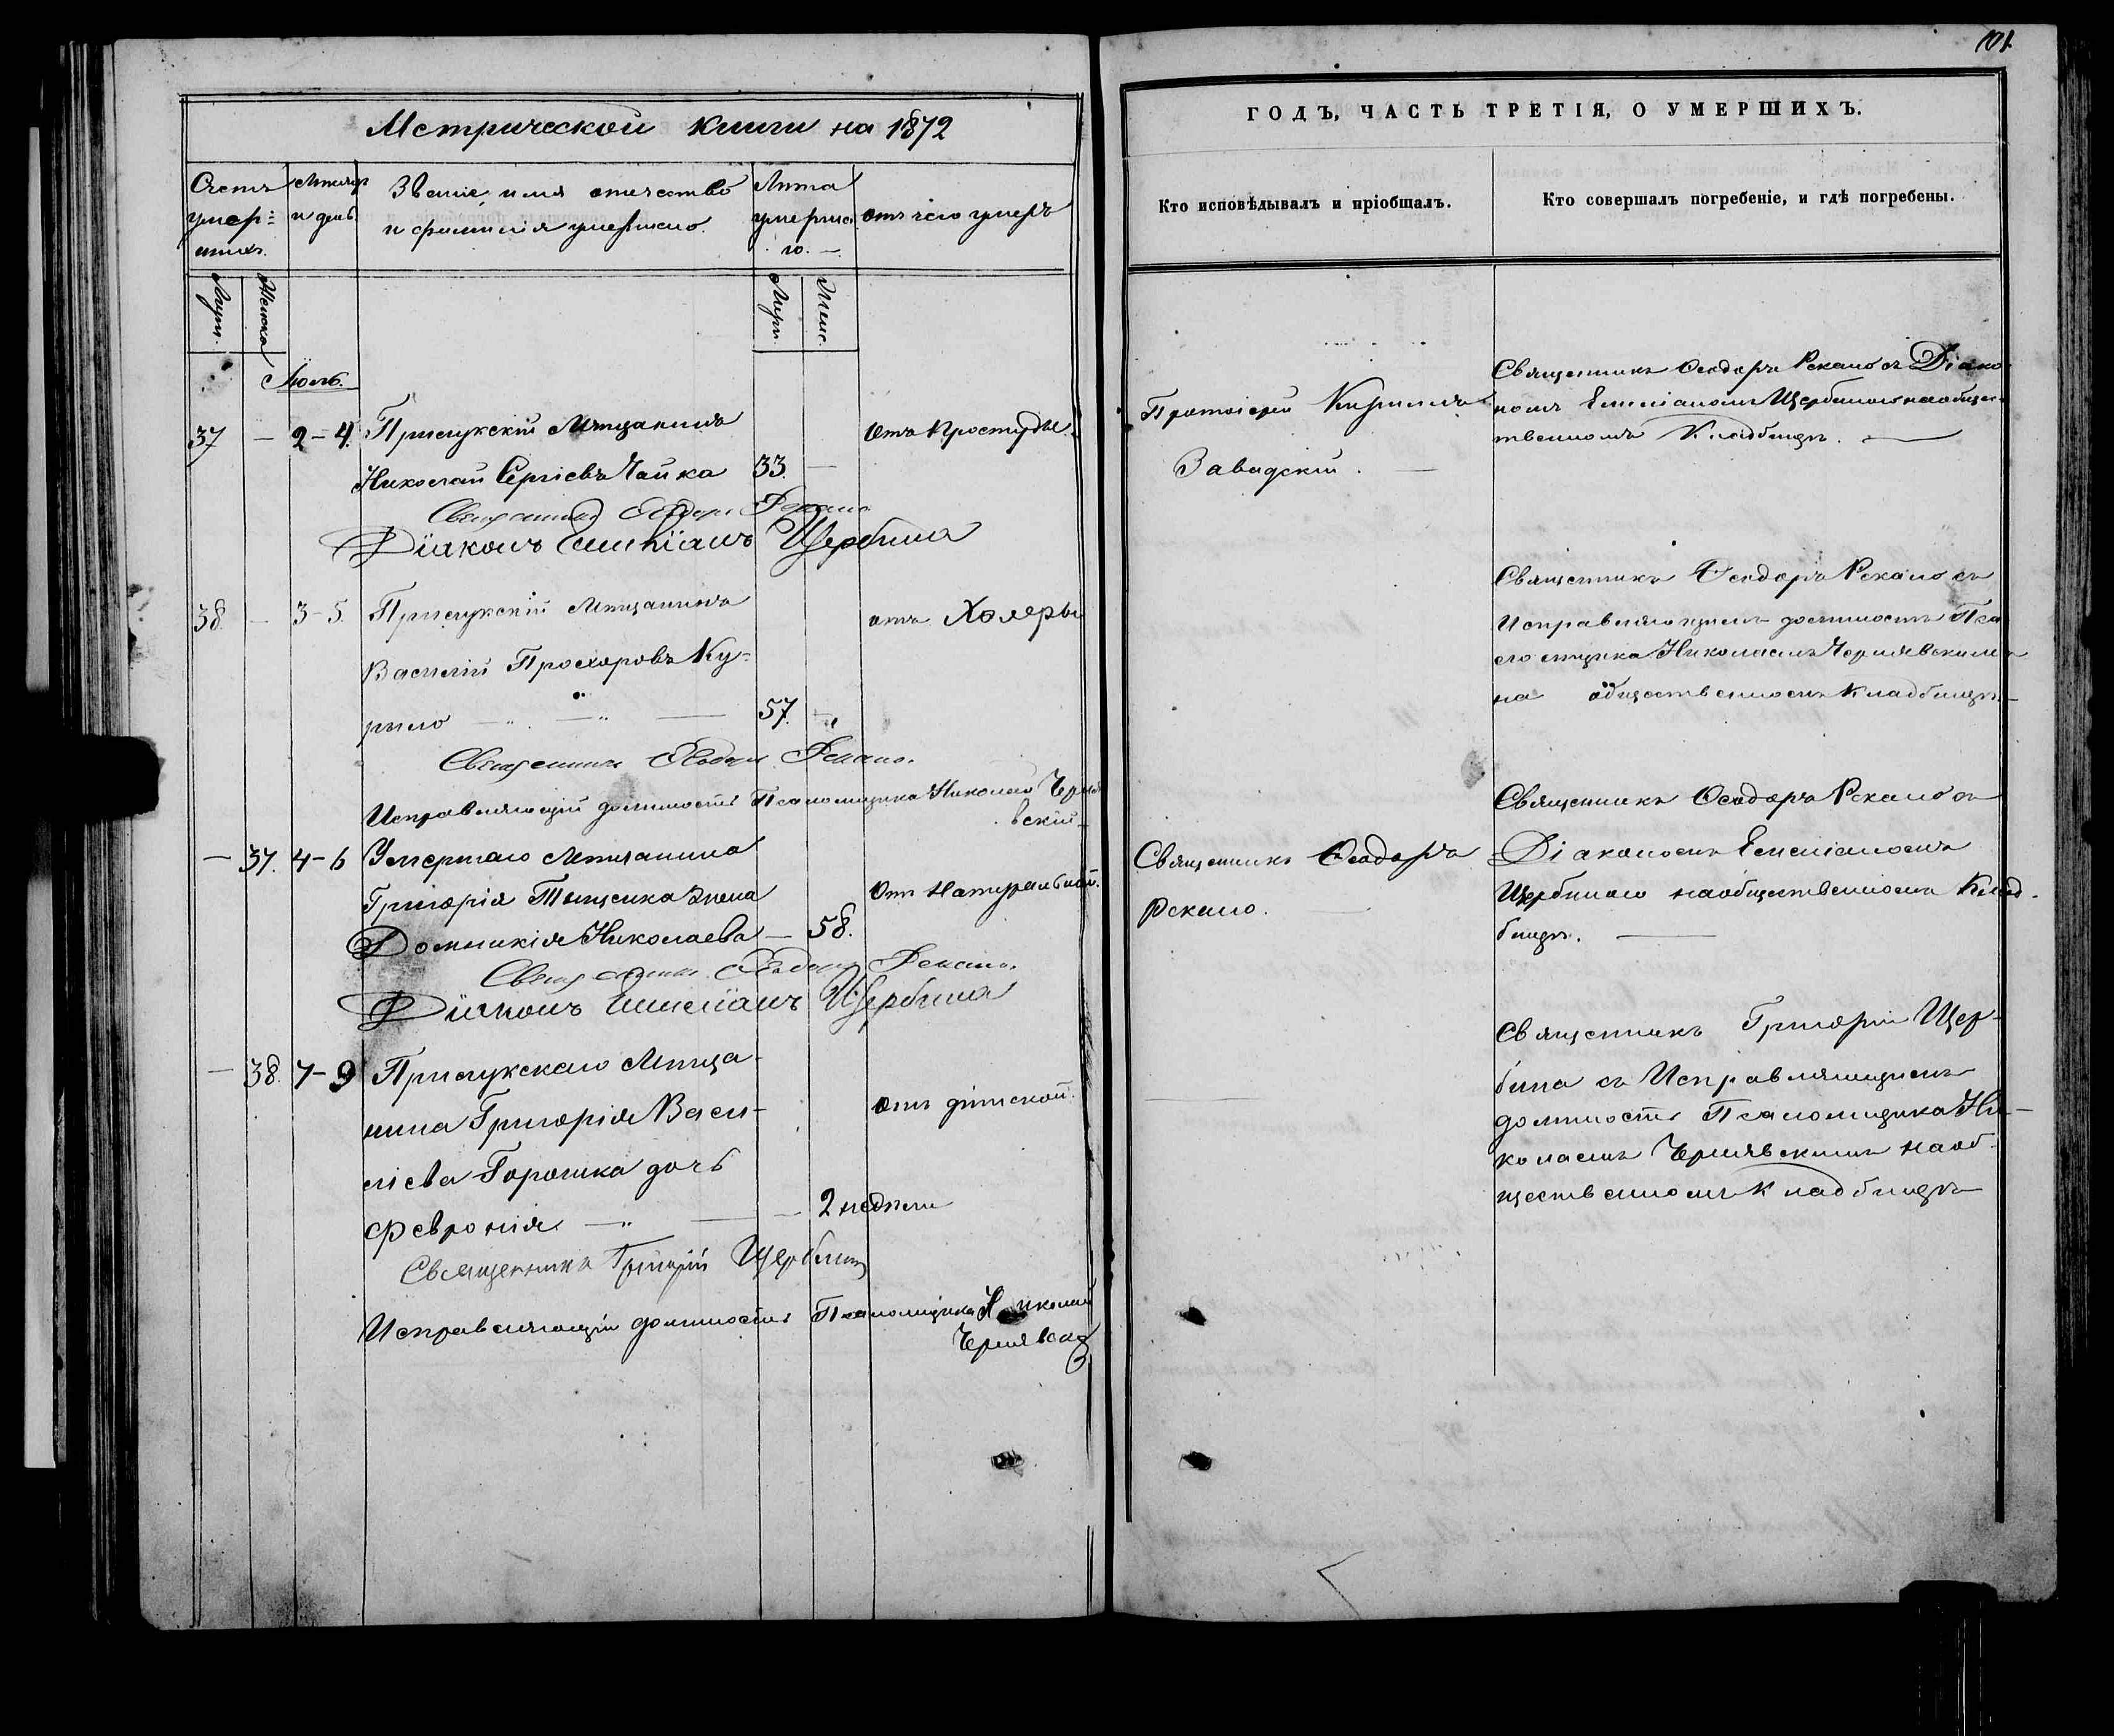 101.
Метрической книги на 1872
ГОДЪ, ЧАСТЬ ТРЕТІЯ, О УМЕРШИХЪ.
Счетъ умер=шихъ.
Мѣсяцъ и день.
Званіе, имя отечество и фамилія умершаго.
Лѣта умерша го. —
отъ чего умеръ
Кто исповѣдывалъ и пріобщалъ.
Кто совершалъ погребеніе, и гдѣ погребены.
Муж.
Женска
Муж.
Женс.
Іюль.
37 — 2-4. Прилукскій Мѣщанинъ
Николай Сергіевъ Чайка 33. —
Отъ Простуды.
Священникъ Ѳеодоръ Рекало
Діаконъ Емиліанъ Щербина
Протоіерей Кириллъ
Завадскій. —
Священникъ Ѳеодоръ Рекало съ Діако
номъ Емиліаномъ Щербиною на общес
твенномъ Кладбищѣ. —
38. — 3-5. Прилукскій Мѣщанинъ
Василій Прохоровъ Ку-
рыло — 57. —
отъ Холеры
Священникъ Ѳеодоръ Рекало.
Исправляющій должность Псаломщика Николай Черня
вскій
Священникъ Ѳеодоръ Рекало съ
Исправляющимъ должность Пса
ломщика Николаемъ Чернявскимъ
на общественномъ Кладбищѣ. —
— 37. 4-6 Умершаго Мѣщанина
Григорія Тищенка жена
Домникія Николаева — 58.
Отъ Натуральной.
Священникъ Ѳеодоръ Рекало.
Діаконъ Емиліанъ Щербина
Священникъ Ѳеодоръ
Рекало. —
Священникъ Ѳеодоръ Рекало съ
Діакономъ Емиліаномъ
Щербиною на общественномъ Клад
бищѣ. —
— 38. 7-9 Прилукскаго Мѣща-
нина Григорія Васи-
ліева Горошка дочь
Февронія — 2 недѣли
отъ дѣтской.
Священникъ Григорій Щербина
Исправляющій должность Псаломщика Николай
Чернявскій
Священникъ Григорій Щер-
бина съ Исправляющимъ
должность Псаломщика Ни-
колаемъ Чернявскимъ на об-
щественномъ Кладбищѣ